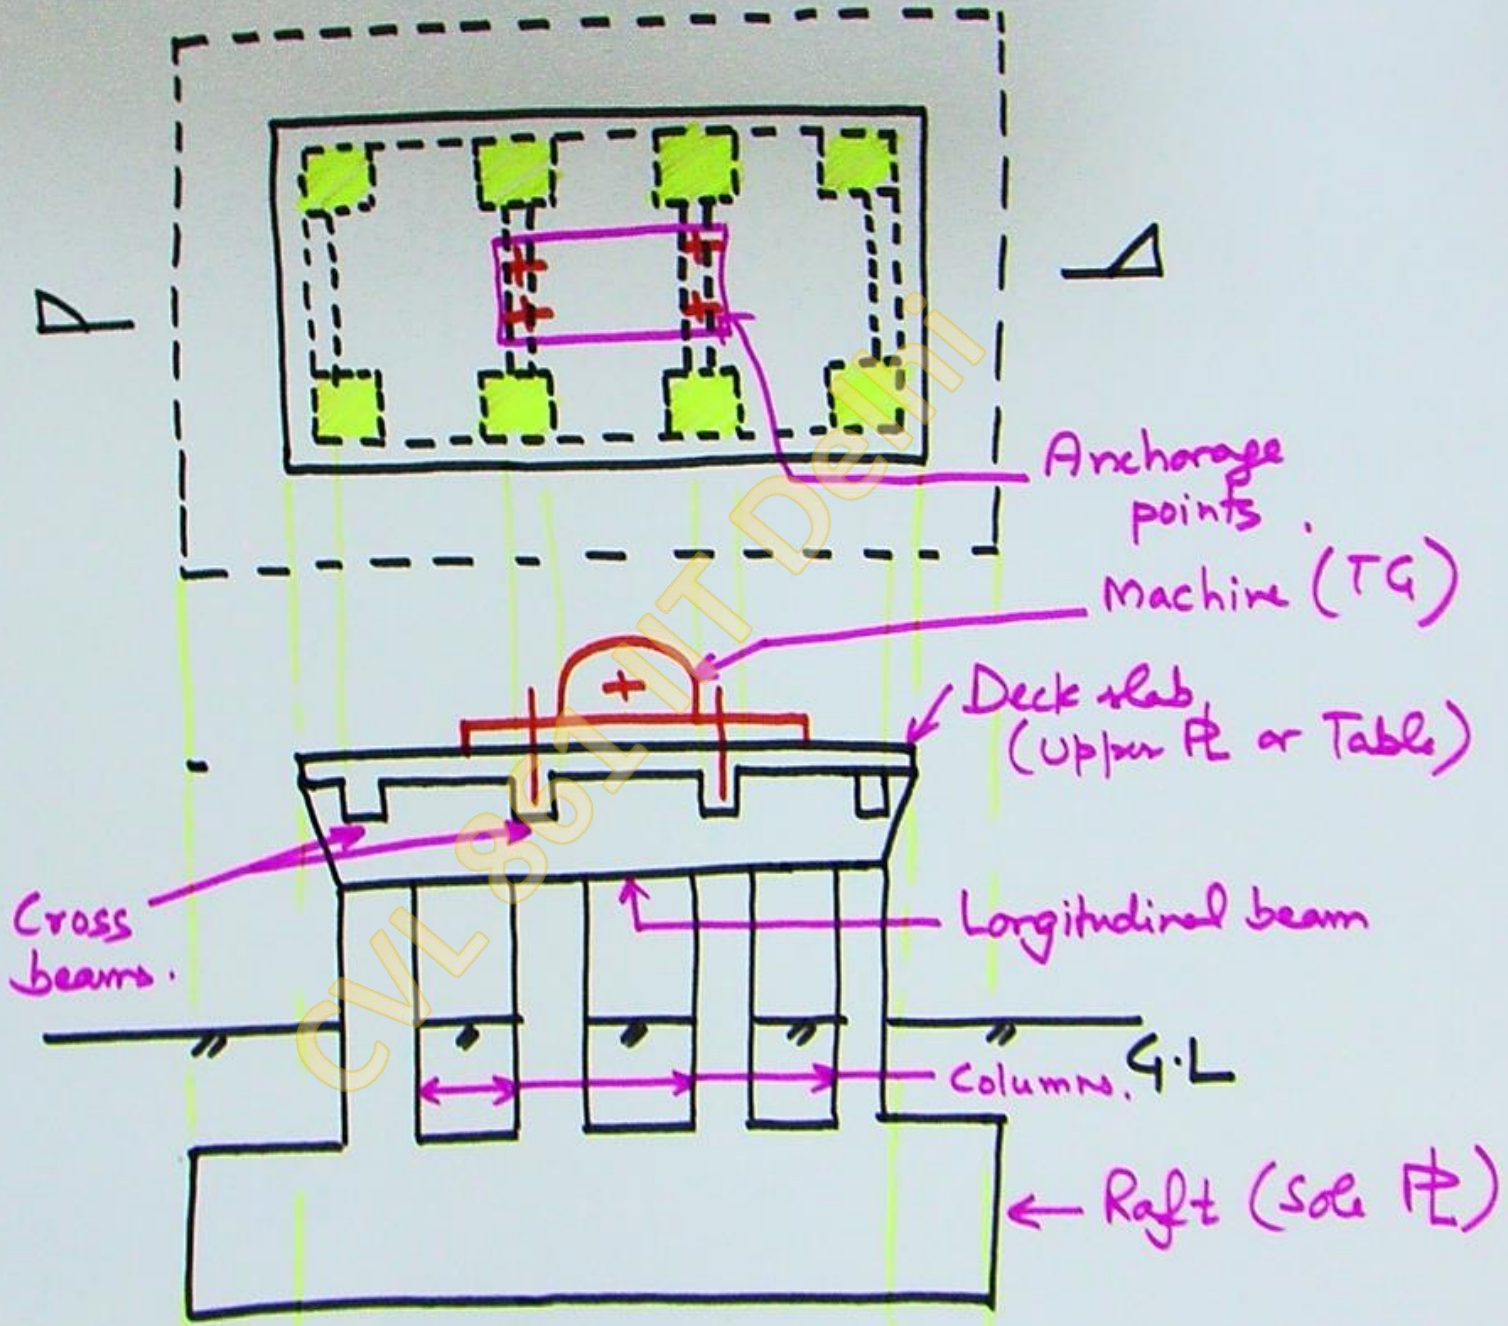 Anchorage
points.
Machine (TG)
Deck slab
(Upper PL or Table)
Cross
beams.
Longitudinal beam
Columns.
G.L
Raft (Sole PL)
CVL 861 IIT Delhi